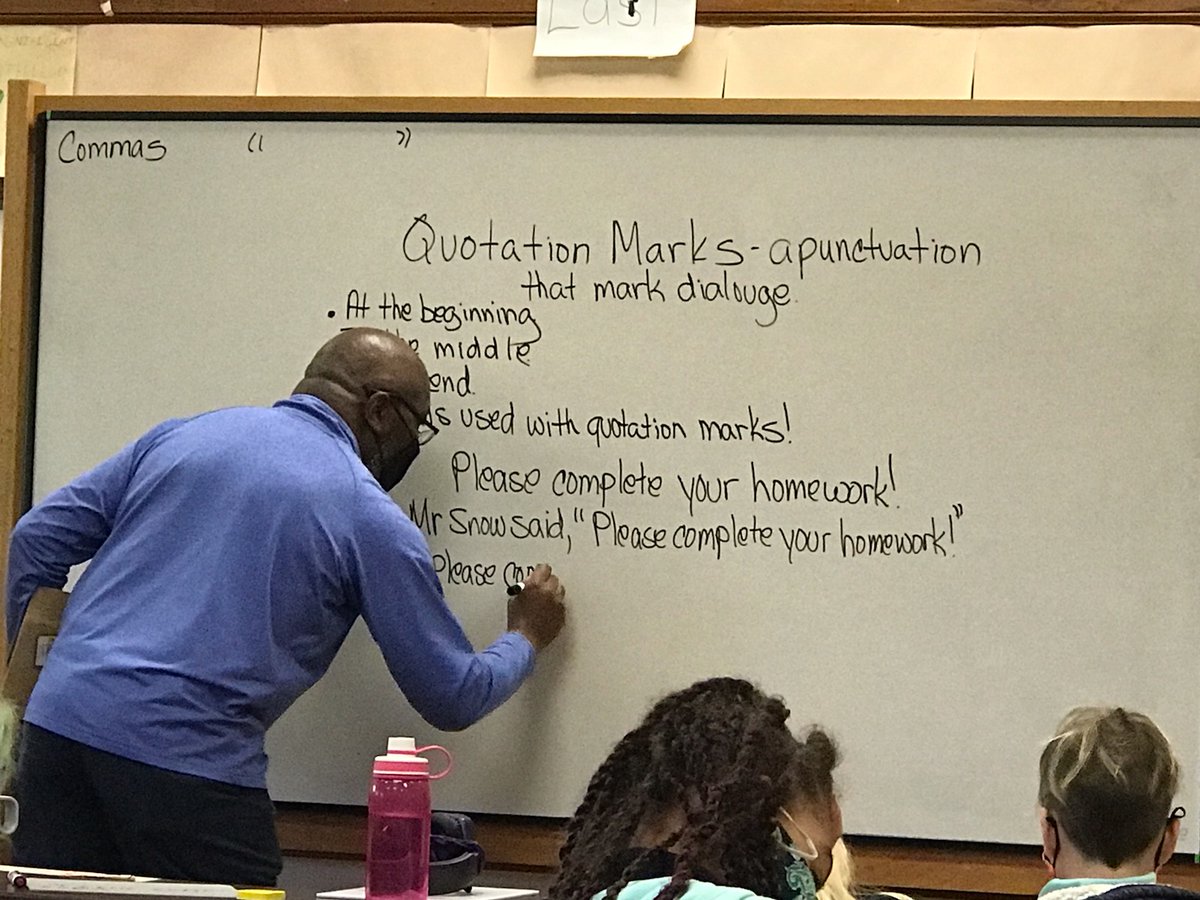 East
Commas “ ”
Quotation Marks - a punctuation
that mark dialouge.
• At the beginning
middle
end.
used with quotation marks!
Please complete your homework!
Mr Snow said, “Please complete your homework!”
Please com